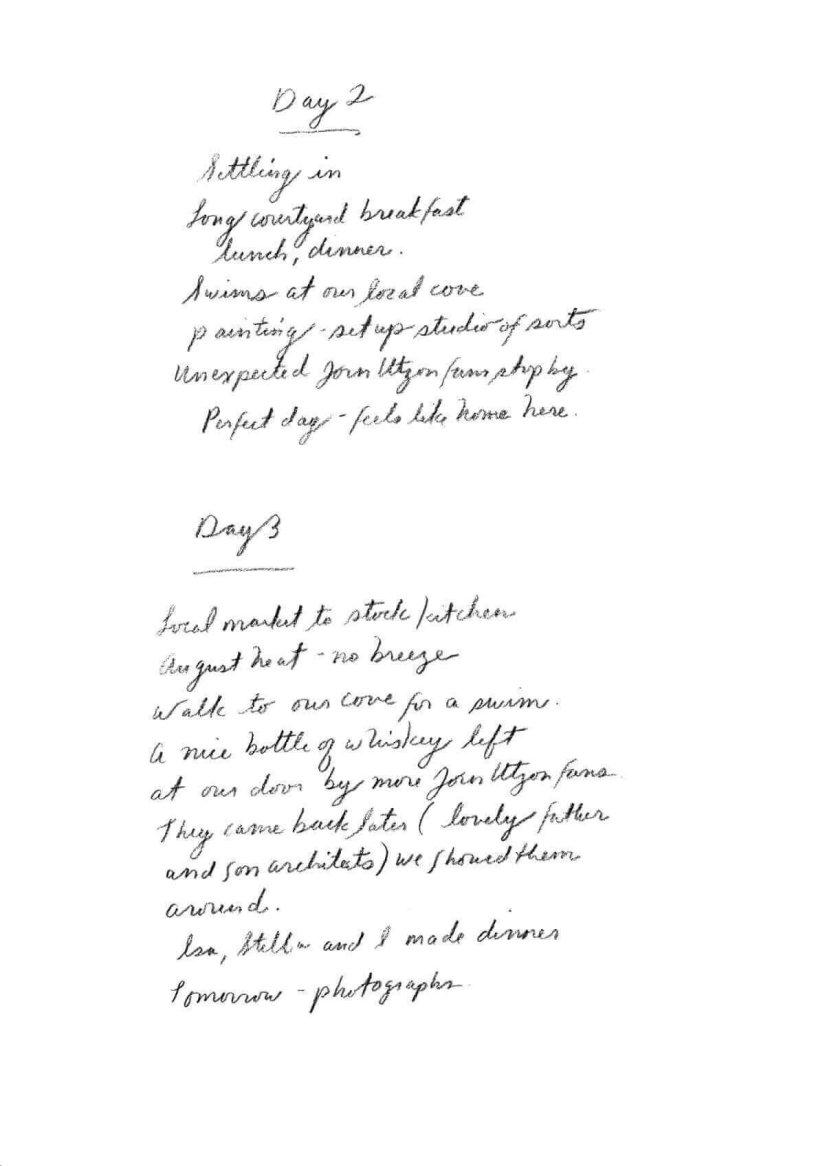 Day 2
Settling in
Long courtyard breakfast
lunch, dinner.
Swims at our local cove
painting - set up studio of sorts
Unexpected Jorn Utzon fans stop by.
Perfect day - feels like home here.
Day 3
Local market to stock kitchen
August heat - no breeze
Walk to our cove for a swim.
A nice bottle of whiskey left
at our door by more Jorn Utzon fans.
They came back later ( lovely father
and son architects) we showed them
around.
Isa, Stella and I made dinner
Tomorrow - photographs.